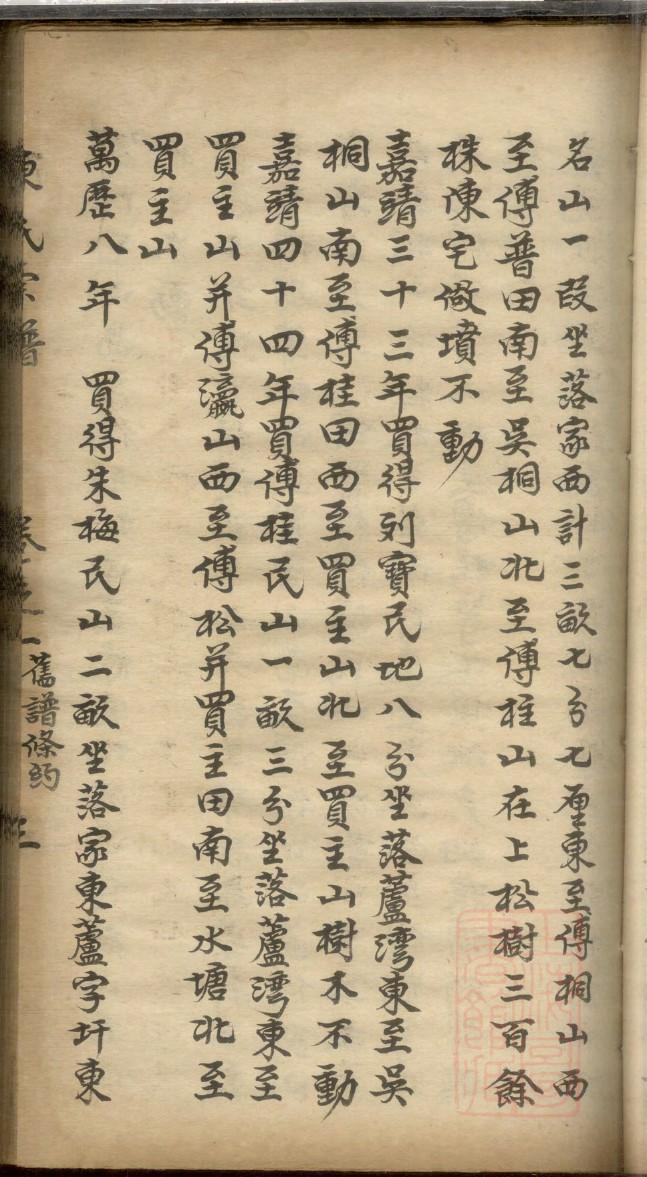 名山一段坐落家西計三畝七分七厘東至傅桐山西
至傅普田南至吳桐山北至傅桂山在上松樹三百餘
株陳宅做墳不動
嘉靖三十三年買得列寶民地八分坐落蘆灣東至吳
桐山南至傅桂田西至買主山北至買主山樹木不動
嘉靖四十四年買傅桂民山一畝三分坐落蘆灣東至
買主山并傅瀛山西至傅松并買主田南至水塘北至
買主山
萬歷八年　買得朱梅民山二畝坐落家東蘆字圩東
陳氏宗譜 卷之一 舊譜條約 三